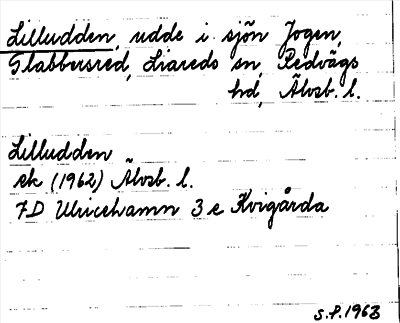 Lilludden, udde i sjön Jogen,
Slabbersred, Liareds sn, Redvägs
hd, Älvsb. l.
Lilludden
ek (1962) Älvsb. l.
7D Ulricehamn 3 e Kvigårda
S.F. 1963